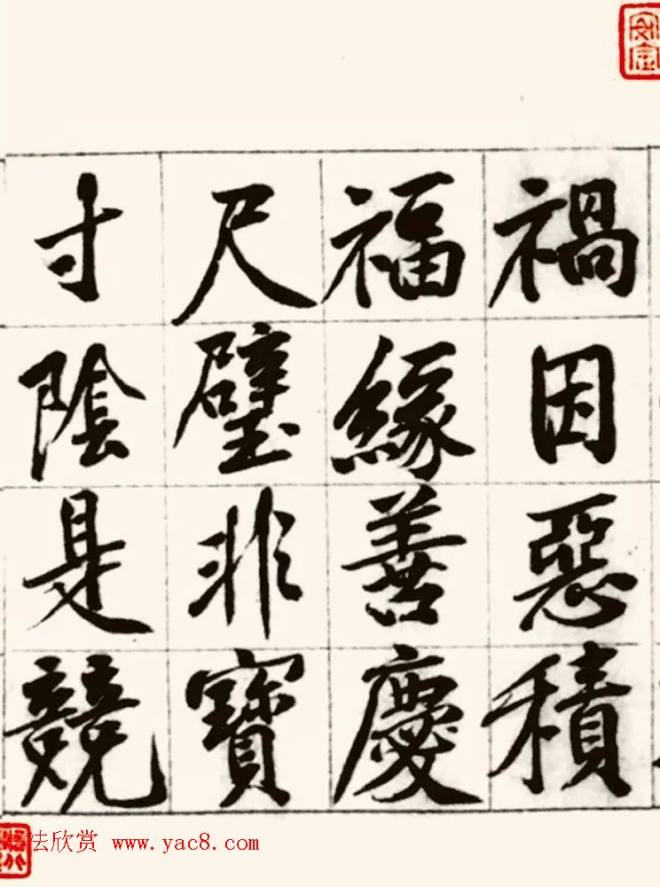 禍因惡積
福緣善慶
尺璧非寶
寸陰是競
法欣赏 www.yac8.com